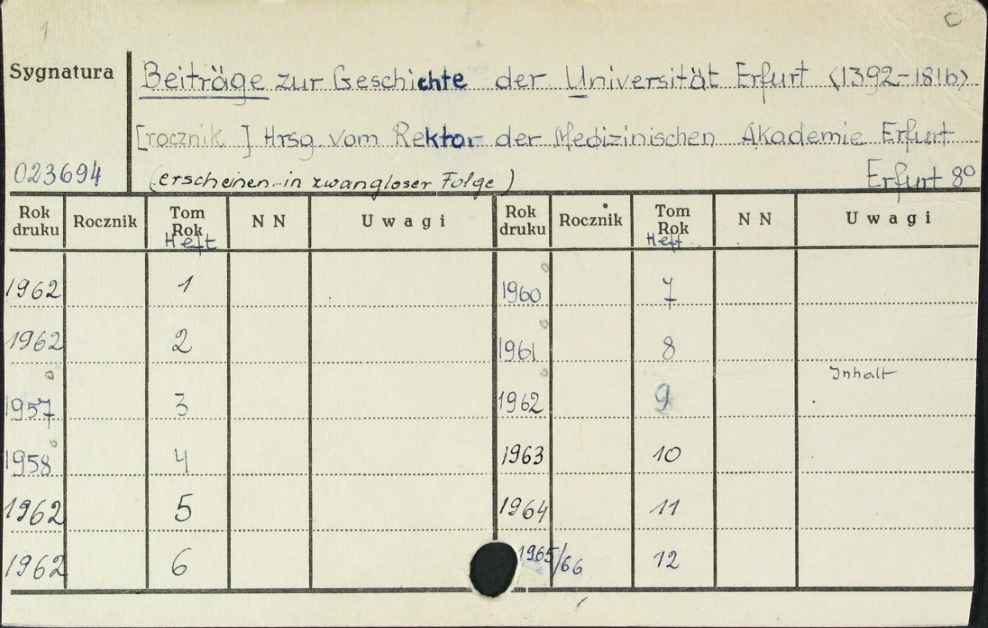 Sygnatura
Beiträge zur Geschichte der Universität Erfurt (1392-1816)
[rocznik] Hrsg. vom Rektor der Medizinischen Akademie Erfurt
023694
(erscheinen in zwangloser Folge)
Erfurt 8°
Rok druku Rocznik Tom Rok Heft N N Uwagi Rok druku Rocznik Tom Rok Heft N N Uwagi
1962 1 1960 7
1962 2 1961 8
1957 3 1962 9 Inhalt
1958 4 1963 10
1962 5 1964 11
1962 6 1965/66 12